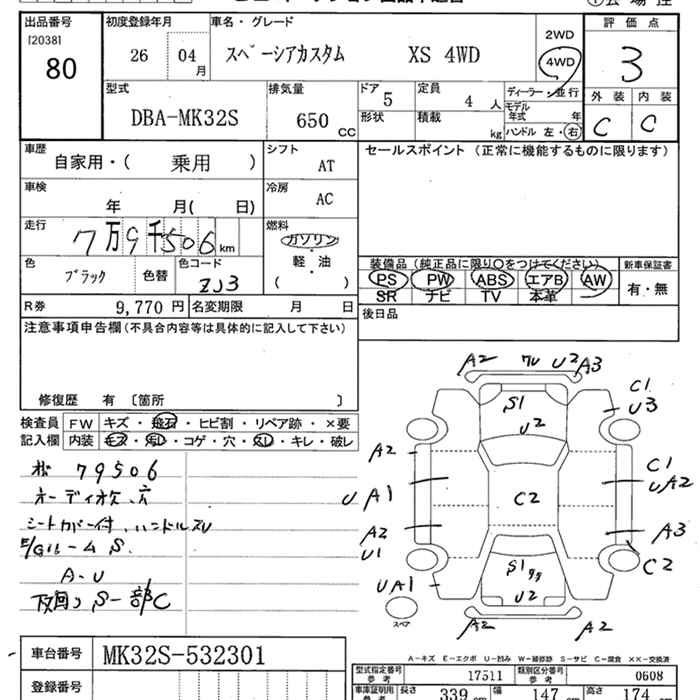 出品番号 初度登録年月 車名・グレード 評価点
[2038] 26 04月 スペーシアカスタム XS 4WD 2WD 4WD 3
80
外装 内装
C C
型式 排気量 ドア 定員 ディーラー・並行
DBA-MK32S 650cc 5 4人 モデル年式 年
形状 積載 kg ハンドル 左・右
車歴 シフト セールスポイント (正常に機能するものに限ります)
自家用・( 乗用 ) AT
車検 冷房
年 月( 日) AC
走行 燃料
7万9千506km ガソリン・軽・油
( )
色 色コード 装備品 (純正品に限り○をつけてください) 新車保証書
ブラック 色替 ZJ3 PS PW ABS エアB AW 有・無
SR ナビ TV 本革
R券 9,770円 名変期限 月 日 後日品
注意事項申告欄 (不具合内容等は具体的に記入して下さい)
修復歴 有 〔箇所 〕
検査員 FW キズ・飛石・ヒビ割・リペア跡・×要
記入欄 内装 キズ・汚レ・コゲ・穴・スレ・キレ・破レ
79506
オーディオ欠、穴
シートカバー付、ハンドルスレ
E/Gルーム S.
A・U
下回り S一部C
A2 ワレ U2 A3
S1 C1
U2 U3
A2 C1
U A1 C2 UA2
A2 A3
U1 C2
S1
UA1 U2
スペア A2 A2
車台番号 MK32S-532301
A-キズ E-エクボ U-凹み W-補修跡 S-サビ C-腐食 XX-交換済
登録番号
型式指定番号 参考 17511 類別区分番号 参考 0608
車庫証明用 参考 長さ 339 幅 147 高さ 174